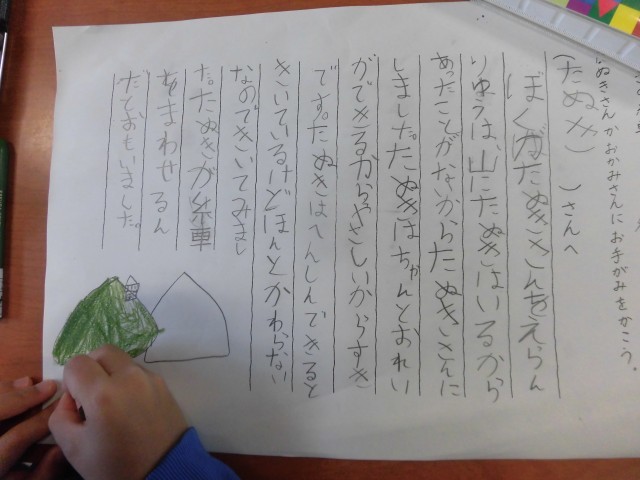 ぬきさんかおかみさんにお手がみをかこう。
(たぬき)さんへ
ぼくがたぬきさんをえらん
りゆうは、山にたぬきはいるから
あったことがないからたぬきさんに
しました。たぬきはちゃんとおれい
ができるからやさしいからすき
です。たぬきはへんしんできると
きいているけどほんとかわらない
なのできいてみまし
た。たぬきが糸車
をまわせるん
だておもいました。